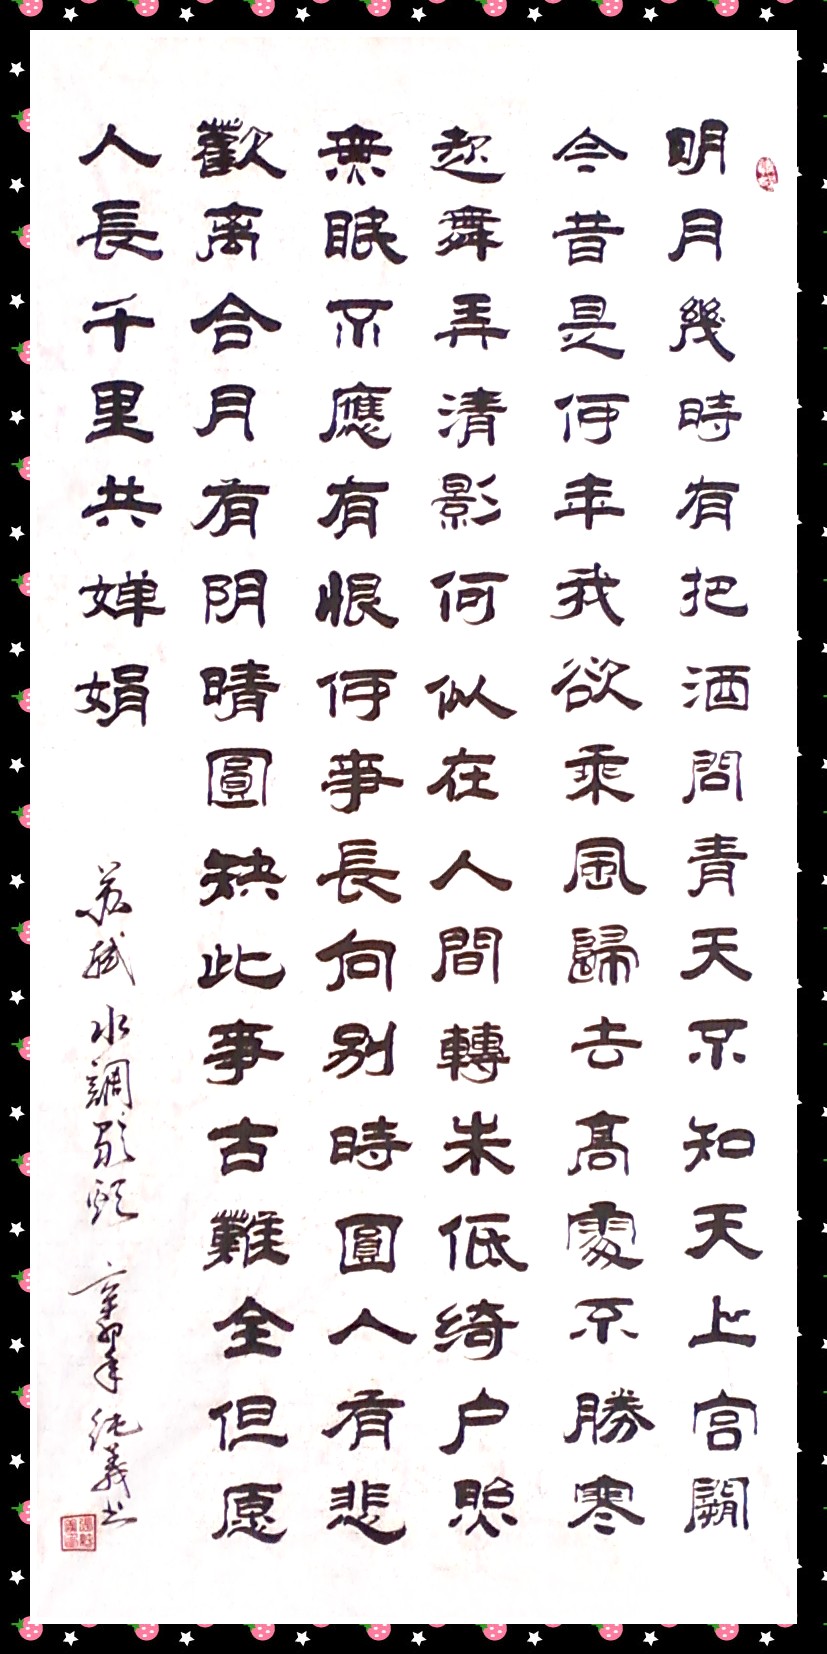 明月幾時有把酒問青天不知天上宫闕
今昔是何年我欲乘風歸去高處不勝寒
起舞弄清影何似在人間轉朱低綺户照
無眠不應有恨何事長向别時圓人有悲
歡離合月有阴晴圓缺此事古難全但愿
人長千里共婵娟
苏軾水調歌頭 辛卯年純義书